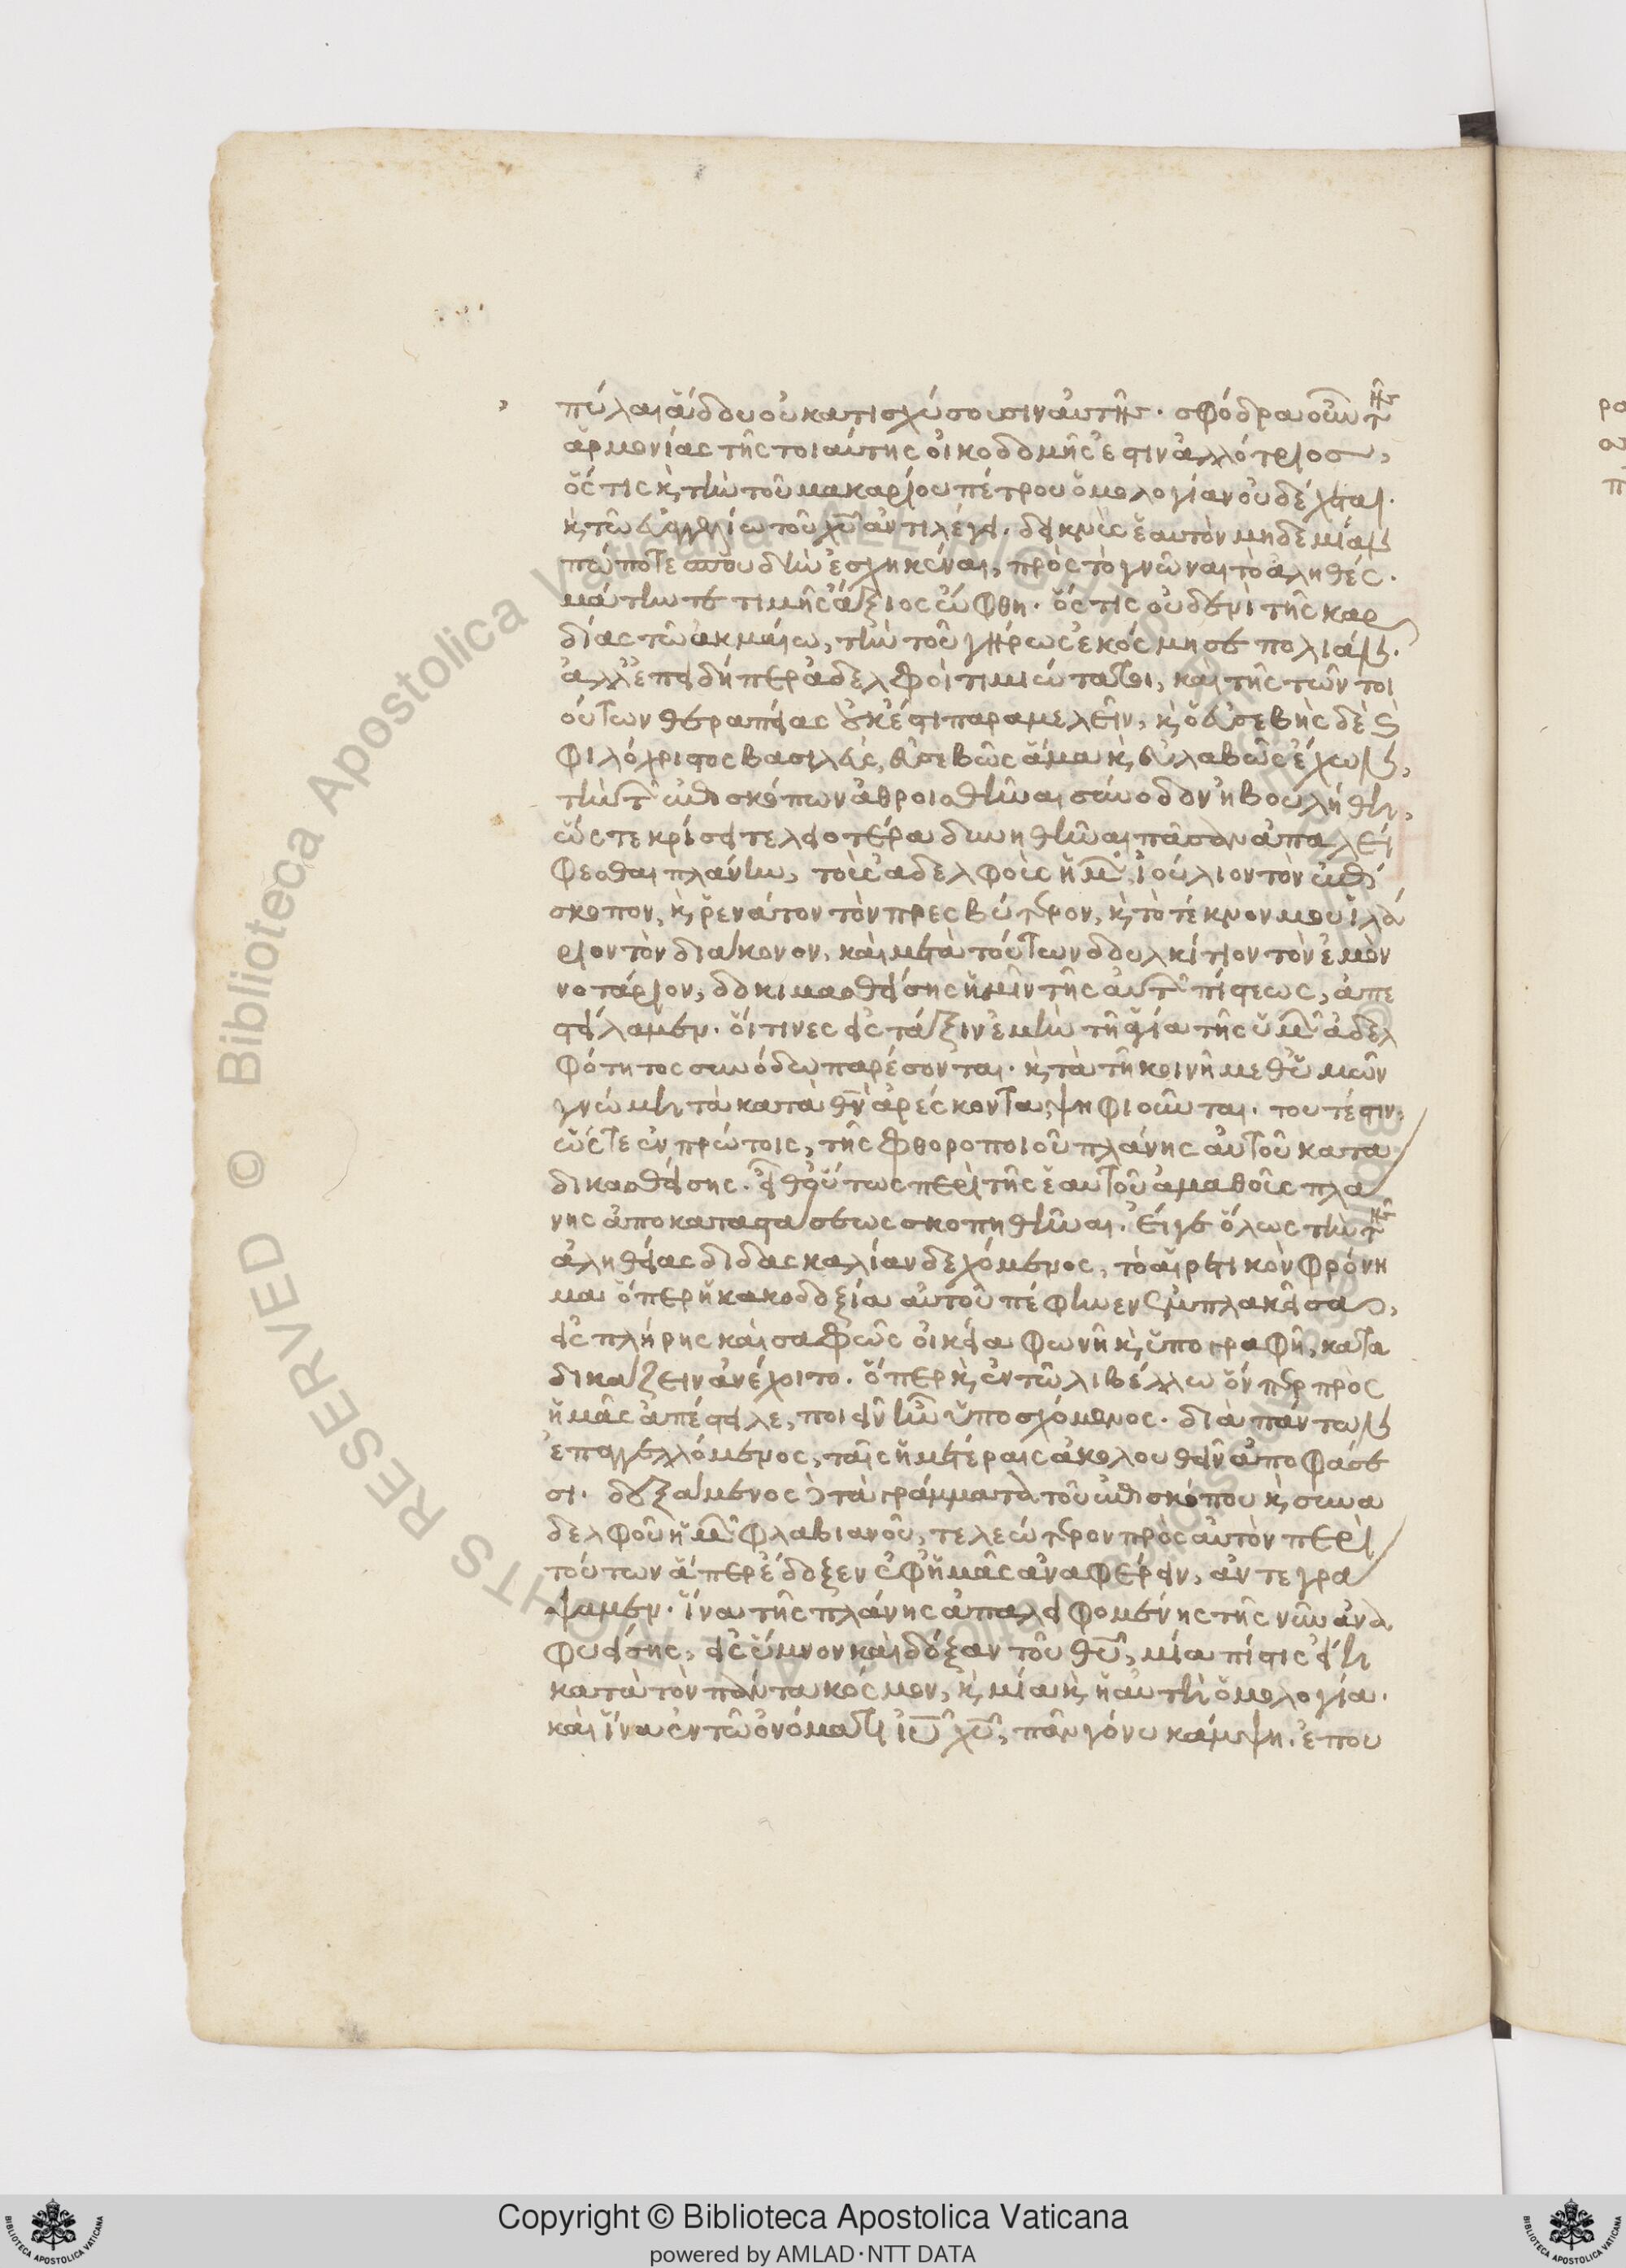 πύλαι ἅδου οὐ κατισχύσουσιν αὐτῆς. σφόδρα οὖν τῆς
ἁρμονίας τῆς τοιαύτης οἰκοδομῆς ἐστιν ἀλλότριος,
ὅς τις κ τὴν τοῦ μακαρίου πέτρου ὁμολογίαν οὐ δέχεται.
κ τῶ εὐαγγελίω τοῦ χυ ἀντιλέγει. δεικνὺς ἑαυτὸν μηδεμίαν
πώποτε σπουδὴν ἐσχηκέναι, πρὸς τὸ γνῶναι τὸ ἀληθές.
μάτην τε τιμῆς ἄξιος ὤφθη. ὅς τις οὐδενὶ τῆς καρ
δίας τῶ ἀκμαίω, τὴν τοῦ γήρως ἐκόσμησε πολιάν.
ἀλλ ἐπειδήπερ ἀδελφοὶ τιμιώτατοι, καὶ τῆς τῶν τοι
ούτων θεραπείας οὐκ ἔστι παραμελεῖν, κ ὁ εὐσεβὴς δὲ κ
φιλόχριστος βασιλεὺς, εὐσεβῶς ἅμα κ εὐλαβῶς ἔχων,
τὴν τῶν ἐπισκόπων ἀθροισθῆναι σύνοδον ἠβουλήθη,
ὥς τε κρίσει τελειοτέρα δυνηθῆναι πᾶσαν ἀπαλεί
φεσθαι πλάνην, τοὺς ἀδελφοὺς ἡμῶν ἰούλιον τὸν ἐπί
σκοπον, κ ῥενάτον τὸν πρεσβύτερον, κ τὸ τέκνον μου ἱλά
ριον τὸν διάκονον, καὶ μετὰ τούτων δουλκίτιον τὸν ἐμὸν
νοτάριον, δοκιμασθείσης ἡμῖν τῆς αὐτῶν πίστεως, ἀπε
στείλαμεν. οἵ τινες εἰς τάξιν ἐμὴν τῆ ἁγία τῆς ὑμῶν ἀδελ
φότητος συνόδω παρέσονται. κ τὰ τῆ κοινῆ μεθ ὑμῶν
γνώμη τὰ κατὰ θν ἀρέσκοντα, ψηφιοῦνται. του τέστιν,
ὥς τε ἐν πρώτοις, τῆς φθοροποιοῦ πλάνης αὐτοῦ κατα
δικασθείσης. εἶθ οὕτως περὶ τῆς ἑαυτοῦ ἀμαθοῦς πλά
νης ἀποκαταστάσεως σκοπηθῆναι. εἴγε ὅλως τὴν τῆς
ἀληθείας διδασκαλίαν δεχόμενος, τὸ αἱρετικὸν φρόνη
μα ὅπερ ἡ κακοδοξία αὐτοῦ πέφυνεν ἐμπλακεῖσα,
εἰς πλήρης καὶ σαφῶς οἰκεία φωνῆ κ ὑπογραφῆ, κατα
δικάζειν ἀνέχοιτο. ὅπερ κ ἐν τῶ λιβέλλω ὅν περ πρὸς
ἡμᾶς ἀπέστειλε, ποιεῖν ἦν ὑποσχόμενος. διὰ πάντων
ἐπαγγελλόμενος, ταῖς ἡμετέραις ἀκολουθεῖν ἀποφάσε
σι. δεξάμενος δὲ τὰ γράμματα τοῦ ἐπισκόπου κ συνα
δελφοῦ ἡμῶν φλαβιανοῦ, τελεώτερον πρὸς αὐτὸν περὶ
τούτων ἅπερ ἔδοξεν ἐφ ἡμᾶς ἀναφέρειν, ἀντεγρά
ψαμεν. ἵνα τῆς πλάνης ἀπαλειφομένης τῆς νῦν ἀνα
φυείσης, εἰς ὕμνον καὶ δόξαν τοῦ θυ, μία πίστις εἴη
κατὰ τὸν πάντα κόσμον, κ μία κ ἡ αὐτὴ ὁμολογία.
καὶ ἵνα ἐν τῶ ὀνόματι ιυ χυ, πᾶν γόνυ κάμψη. ἐπου
© Biblioteca Apostolica Vaticana
Copyright © Biblioteca Apostolica Vaticana
powered by AMLAD·NTT DATA